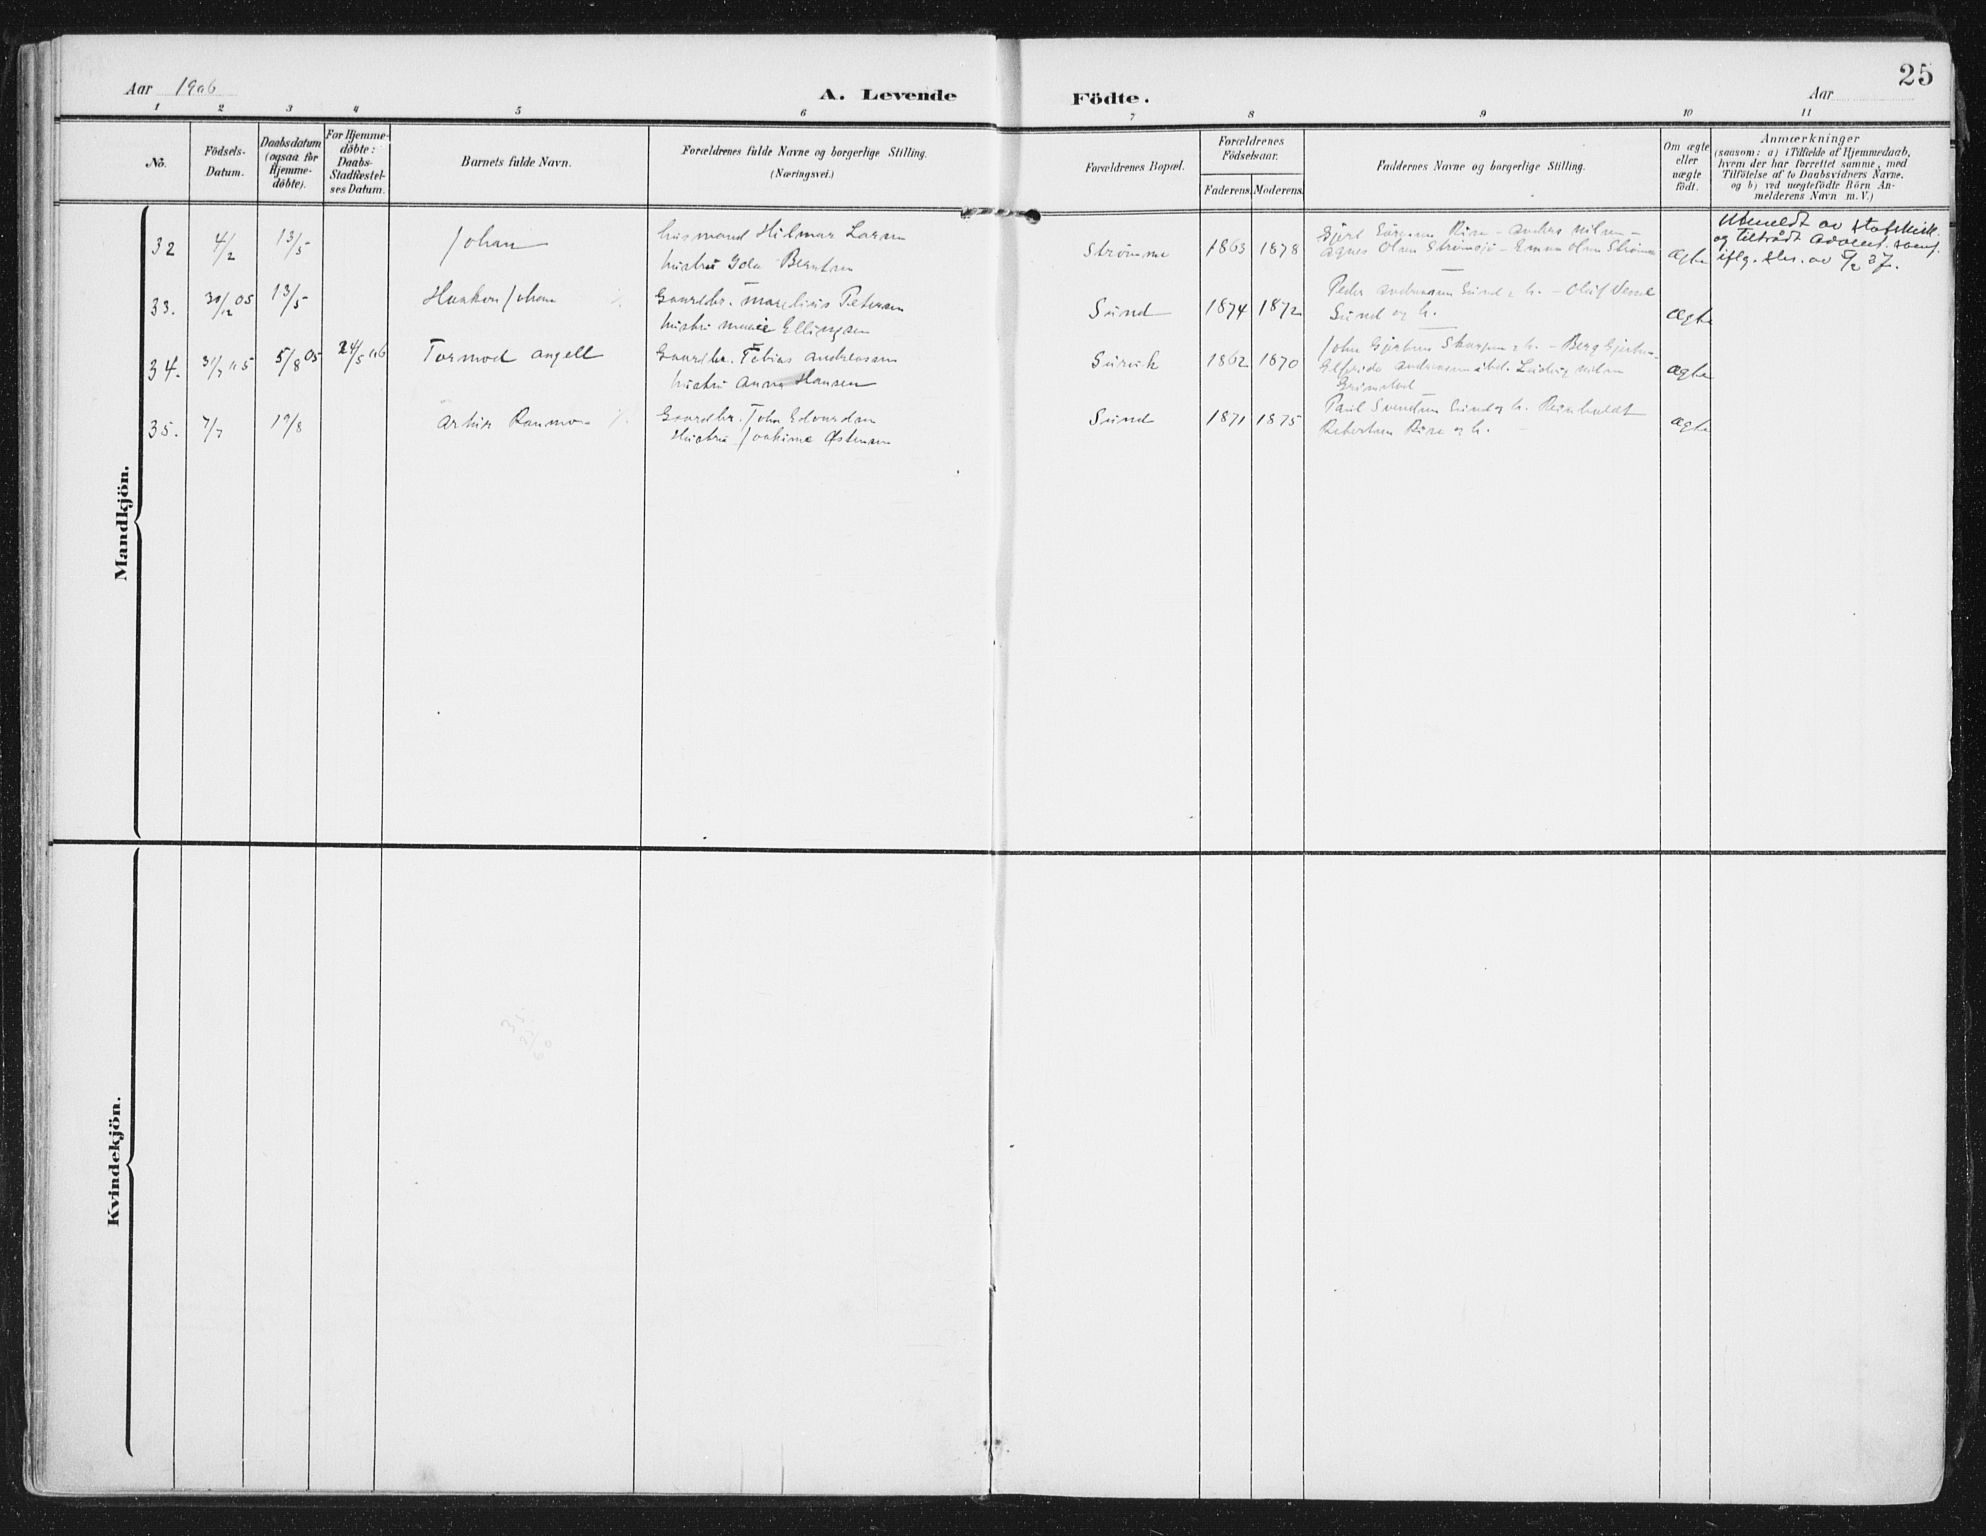 25
Aar 1906
A. Levende Födte.
Aar
1 2 3 4 5 6 7 8 9 10 11
No.
Födsels-
Datum.
Daabsdatum
(ogsaa for
Hjemme-
döbte).
For Hjemme-
döbte:
Daabs-
Stadfæstel-
ses Datum.
Barnets fulde Navn.
Forældrenes fulde Navne og borgerlige Stilling.
(Næringsvei.)
Forældrenes Bopæl.
Forældrenes
Födselsaar.
Faderens. Moderens.
Faddernes Navne og borgerlige Stilling.
Om ægte
eller
uægte
födt.
Anmærkninger
(saasom: a) i Tilfælde af Hjemmedaab,
hvem der har forrettet samme, med
Tilföielse af to Daabsvidners Navne.
og b) ved uægtefödte Börn An-
melderens Navn m. V.)
Mandkjön.
32 4/2 13/5 Johan
husmand Hilmar Larsen
hustru Ida Berntsen
Strømme 1863 1878
Agnes Olsen
Ægte
Utmeldt av statskirk.
og tiltrådt Advent.samf.
iflg. 37.
33. 30/12 05 13/5 Haakon Johan
Gaardbr. Marelius Petersen
hustru Marie Ellingsen
Sund 1874 1872
Peder Andreassen Sund & h. - Oluf
Sund og h.
Ægte
34. 31/7 05 5/8 05 24/5 06 Tormod Angell
Gaardbr. Tobias Andreassen
hustru Anna Hansen
1862 1870
John
Elfrida Andreassen Ludvig Nilsen
Grimstad
Ægte
35. 7/7 19/8 Artur
Gaardbr. John Edvardsen
Hustru Joakime Østensen
Sund 1871 1875
Paul Svendsen Sund og h. Reinholdt
Robertsen Rise og h.
Ægte
Kvindekjön.
35